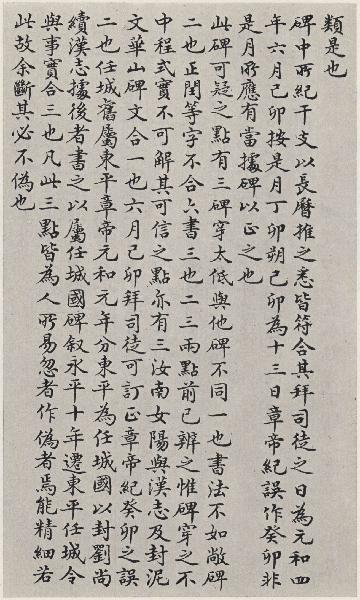 類是也
碑中所紀干支以長曆推之悉皆符合其拜司徒之日為元和四
年六月己卯按是月丁卯朔己卯為十三日章帝紀誤作癸卯非
是月所應有當據碑以正之也
此碑可疑之點有三碑穿太低與他碑不同一也書法不如敞碑
二也正閏等字不合六書三也二三兩點前已辨之惟碑穿之不
中程式實不可解其可信之點亦有三汝南女陽與漢志及封泥
文華山碑文合一也六月己卯拜司徒可訂正章帝紀癸卯之誤
二也任城舊屬東平章帝元和元年分東平為任城國以封劉尚
續漢志據後者書之以屬任城國碑叙永平十年遷東平任城令
與事實合三也凡此三點皆為人所易忽者作偽者焉能精細若
此故余斷其必不偽也